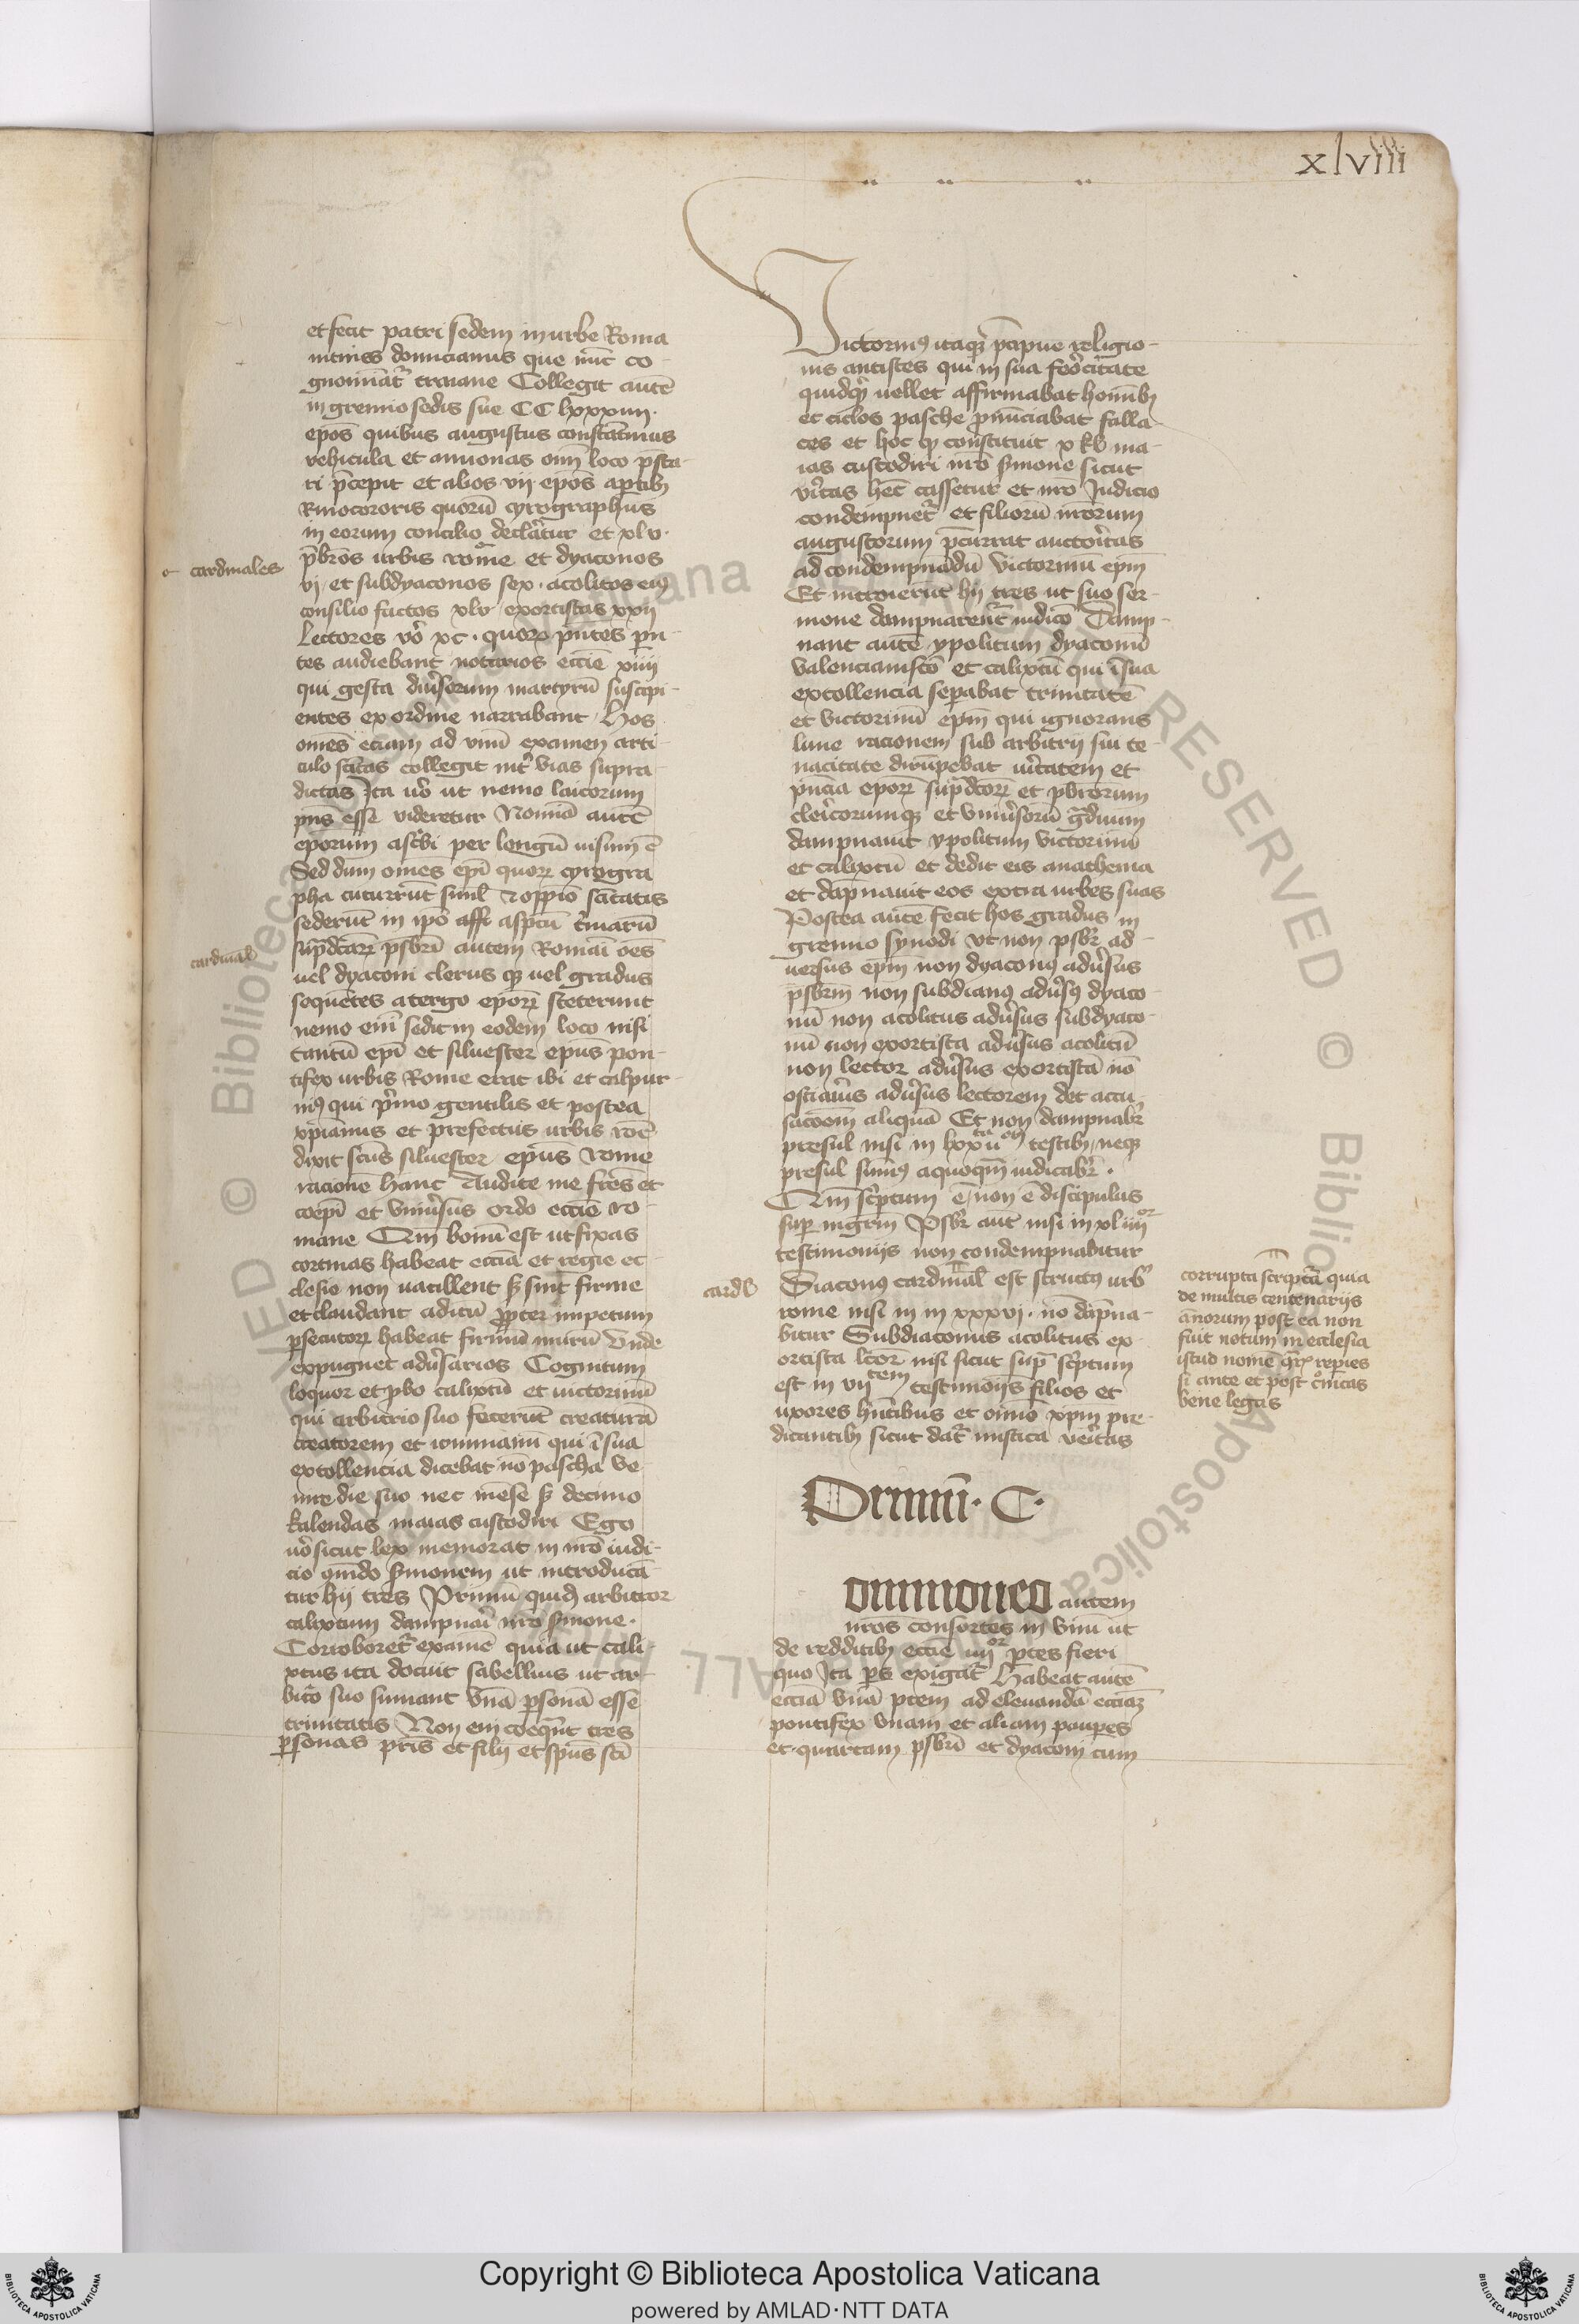 xlviii
et fecit patri sedem in urbe Roma
intra domicianus que nūc co-
gnoīat᷑ traiane Collegit autē
in gremio sedis sue CC lxxxiiii.
ep̄os quibus augustus constātinus
vehicula et annonas om̄i loco p̄sta-
ri p̄cepit et alios vij ep̄os a ꝑtib;
Rinocororis quorū cyrographus
in eorum concilio declar̄tur et xlv.
p̄bros urbis rome et dyaconos
cardinales
vj et subdyaconos sex. acolitos eiꝰ
consilio factos xlv exortistas xxij
Lectores v̊o xc. quoꝝ
tes audiebant notarios eccīe xiiij
qui gesta diūsorum martyrū suscipi-
entes ex ordine narrabant Hos
om̄es eciam ad vnū examen arti-
culo sc̄itas collegit int̄ vias supra-
dictas Ita v̊o ut nemo laicorum
p̄ns esse videretur Noīa autē
ep̄orum asc̄bi per longū uisum ē
Sed dum om̄es ep̄i quoꝝ cyrogra
pha cucurrūt siml̄
sederūt in ip̄o
sup̄dc̄aꝝ p̄sbri autem Romāi oēs
cardinal̄
uel dyaconi clerus qꝫ uel gradus
sequentes a tergo ep̄oꝝ steterunt
nemo eni sedit in eodem loco nisi
tantū ep̄i et siluester ep̄us pon-
tifex urbis Rome erat ibi et calpur-
niꝰ qui p̄mo gentilis et postea
xp̄ianus et prefectus urbis roē
dixit sc̄us siluester ep̄us rome
racionē hanc Audite me fr̄es et
coep̄i et vniūsus ordo eccīe ro-
mane Qm̄ bonū est ut fixas
cortinas habeat eccīa et regie ec-
clesie non uacillent sꝫ sint firme
et claudant aditū ꝓpter impetum
ꝑsecutoꝝ habeat firmū murū Unde
expugnet adūsarios Cognitum
loquor et ꝓbo calixtū et uictorinū
qui arbitrio suo fecerūt creaturā
creatorem et iouinianū qui ī sua
extollencia dicebat nō pascha ve
nire die suo nec mēse sꝫ decimo
kalendas maias custodiri Ego
v̊o sicut lex memorat in nr̄o iudi-
cio qm̄do s̄monem ut introducā-
tur hij tres Primū quidē arbitror
calixtum dampnari nr̄o s̄mone.
Corroboret᷑ examē quia ut cali-
xtus ita docuit sabellius ut ar-
bitō suo sumant vnā ꝑsonā esse
trinitatis Non eni coeqn̄t tres
ꝑsonas pr̄is et filij et sp̄us sc̄i
Victorinꝰ itaqꝫ p̄cipue religio-
nis antistes qui in sua ferocitate
quidqͥd uellet affirmabat hom̄ibꝫ
et ciclos pasche ꝓnūciabat falla-
ces et hoc qͥ constituit x kl̄ ma-
ias custodiri nr̄o s̄mone sicut
v̄itas hēt cassetur et nr̄o Judicio
condempnet᷑ et filiorū nr̄orum
augustorum p̄currat auctoritas
ad condempnādū Victorinū ep̄m
Et introierūt hij tres ut suo ser-
mone dampnarent᷑ iudicō Damp-
nant autē ypolitum dyaconū
valencianistō et calixtū qui ī sua
extollencia seꝑabat trinitatē
et Victorinū ep̄m qui ignorans
lune racionem sub arbitrij sui te-
nacitate dirūpebat uitatem et
p̄ncia ep̄oꝝ sup̄dc̄oꝝ et pbrorum
clericorumqꝫ et vniūsorū gͣduum
dampnauit ypolitum victorinū
et calixtū et dedit eis anathema
et dāpnauit eos extra urbes suas
Postea autē fecit hos gradus in
gremio synodi vt non p̄sbr ad-
uersus ep̄m non dyaconꝰ adūsus
p̄sbrm non subdianꝰ adūsꝰ dyaco-
nū non acolitus adūsus subdyaco-
nū non exortista adūsus acolitū
non lector adūsus exortistā nō
ostiarius adūsus lectorem det accu-
sacōem aliquā Et non dampnabr̄
presul nisi in lxxta iiobꝫ testibꝫ neqꝫ
presul sūmꝰ a quoqm̄ iudicabr̄.
Qm̄ sc̄ptum ē non ē discipulus
suꝑ mgr̄m P̄sbr aut nisi in xliiijor
testimonijs non condempnabitur
Diaconꝰ cardinal̄ est structꝰ urbꝭ
card̄l
rome nisi in xxxvj. nō dāpna-
bitur Subdiaconus acolitus ex-
ortista lc̄or nisi sicut supͣ sc̄ptum
est in vijtem testimonijs filios et
uxores hn̄tibus et om̄o xp̄m pre-
dicantibꝫ sicut dat᷑ mistica veritas
corrupta scriptͣa quia
de multis centenarijs
annorum post ea non
fuit notum in ecclesia
istud nomē qͣre reꝑies
si ante et post cͦnicas
bene legas
Primū. C.
ommoneo autem
nr̄os consortes in vnū ut
de redditibꝫ eccīe iiijor ꝑtes fieri
quo Ita ꝑs exigat᷑ Habeat autē
eccīa vnā ꝑtem ad eleuandā eccīaꝫ
pontifex vnam et aliam pauꝑes
et quartam p̄sbri et dyaconi cum
Copyright © Biblioteca Apostolica Vaticana
powered by AMLAD·NTT DATA